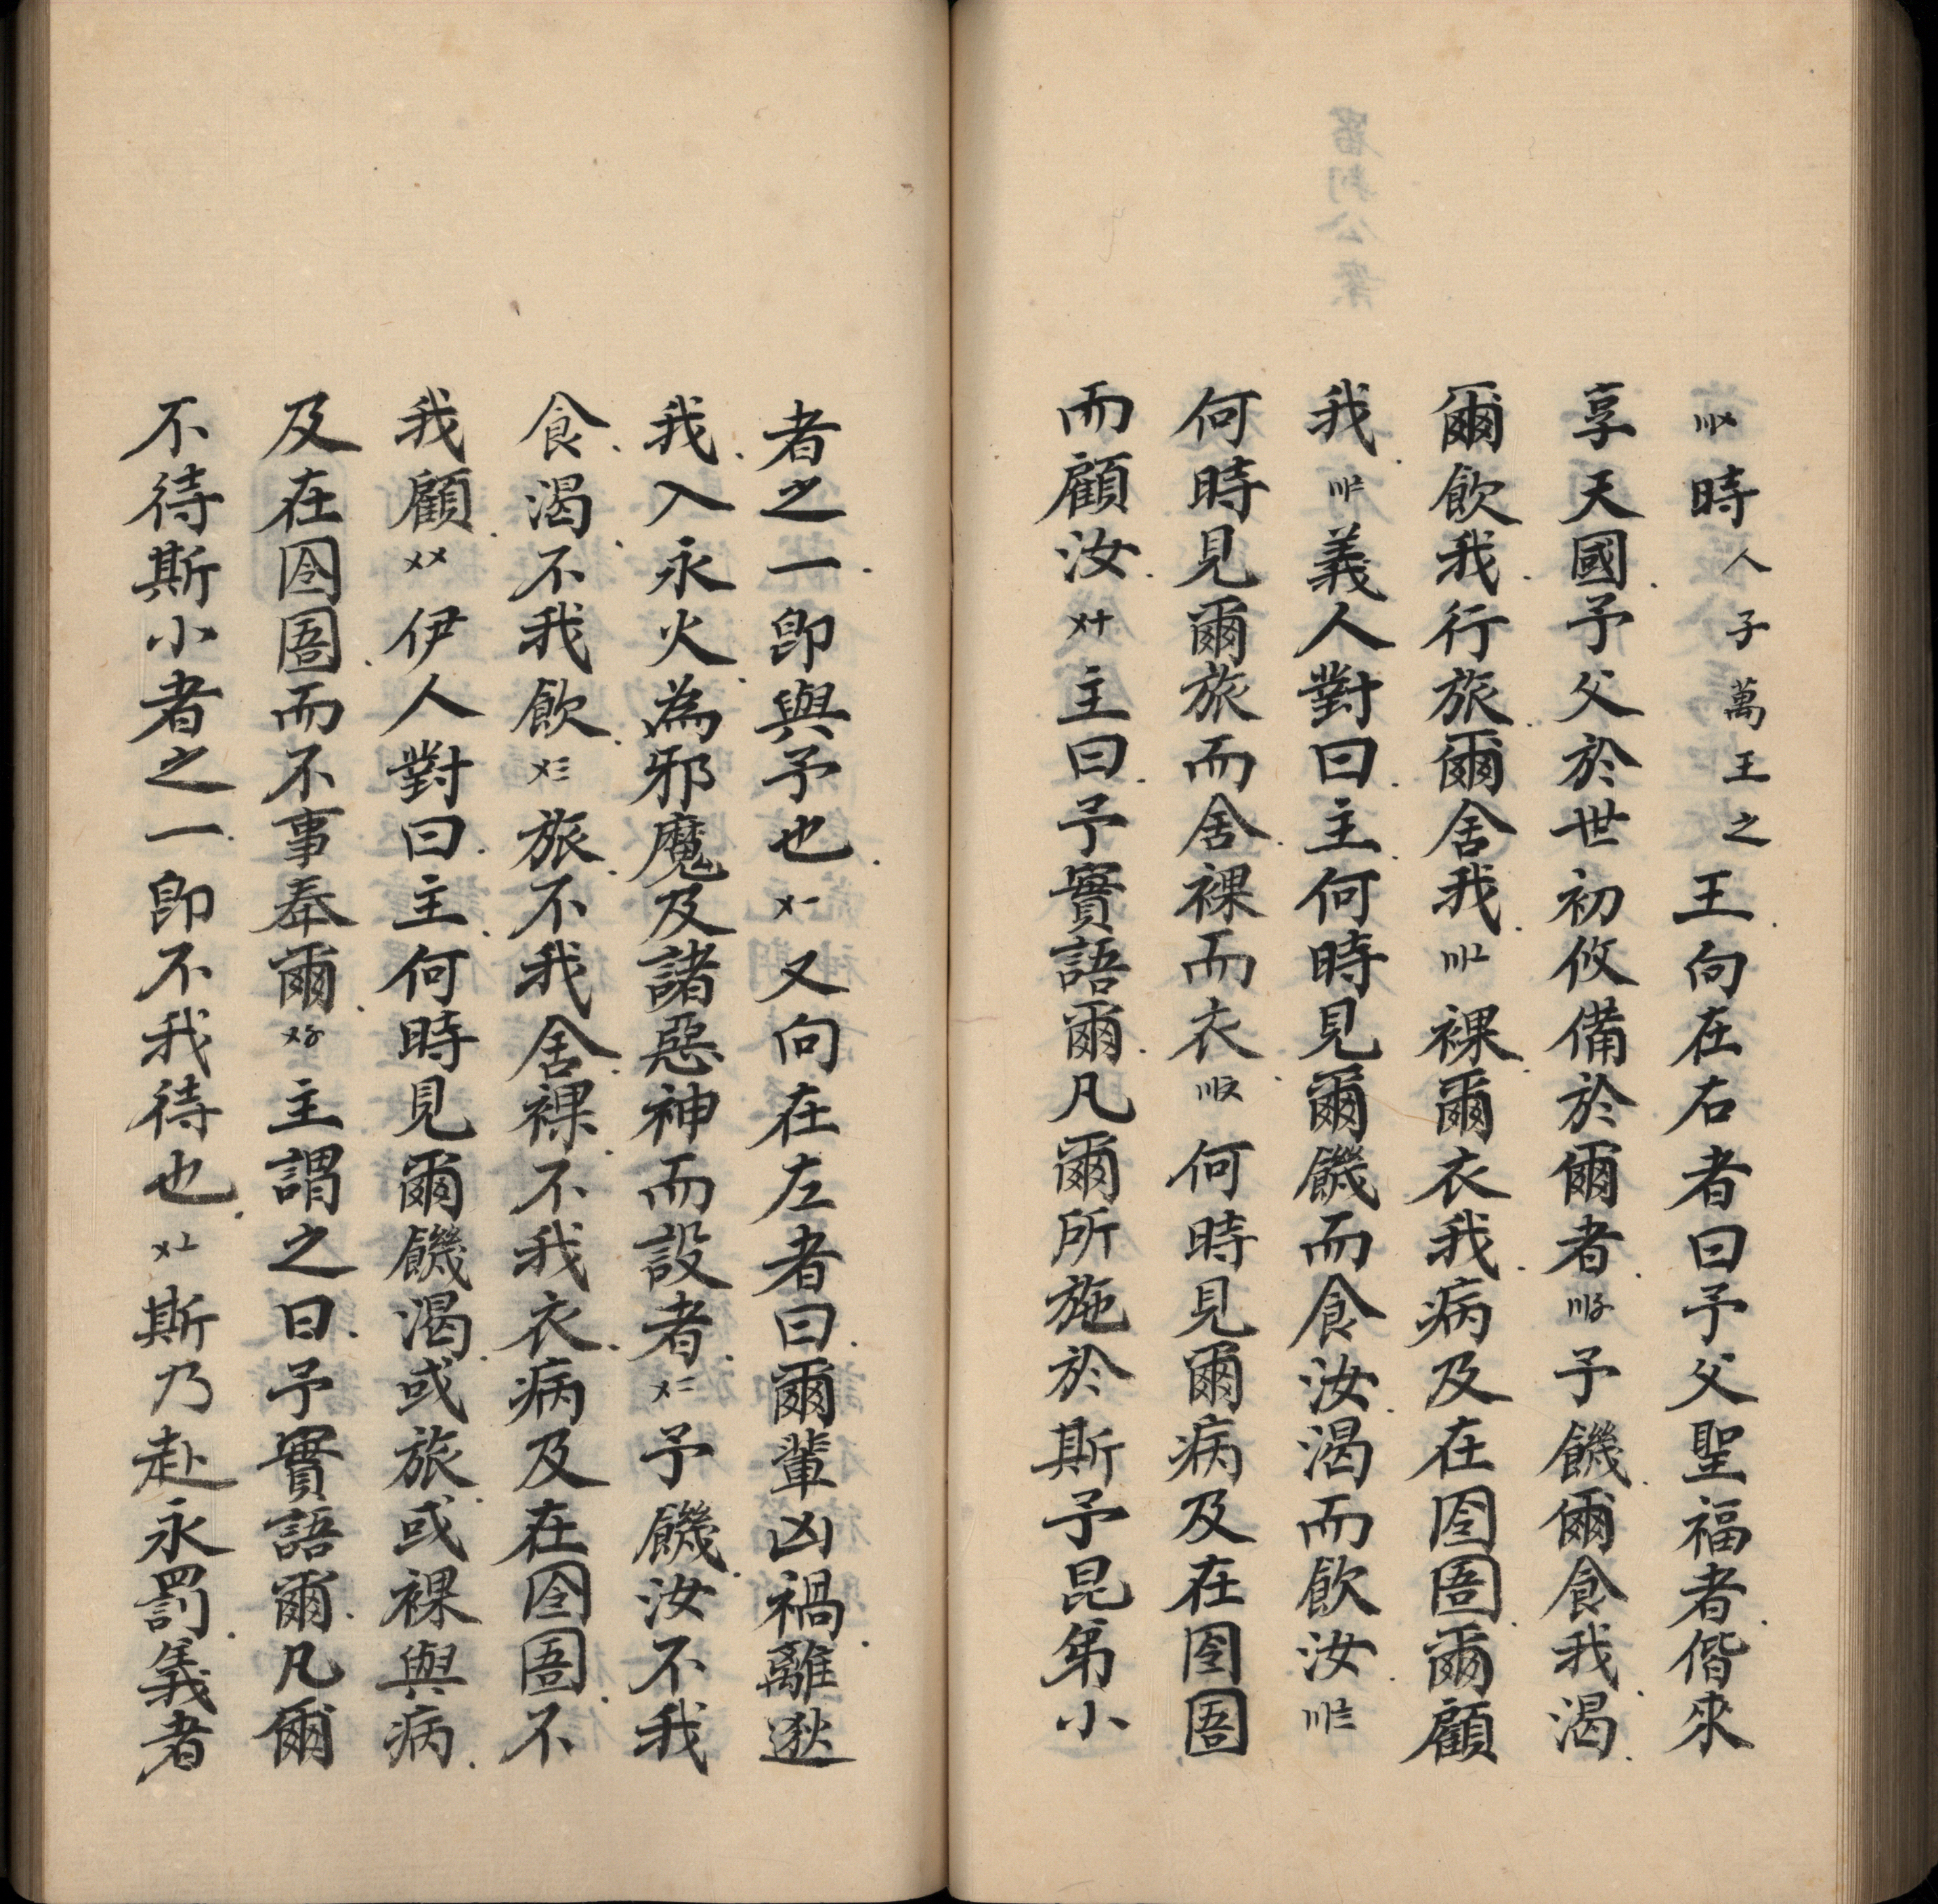 〣〤時人子萬王之王向在右者曰予父聖福者偕來
享天國予父於世初攸備於爾者〣〥予饑爾食我渴
爾飲我行旅爾舍我〣〦裸爾衣我病及在囹圄爾顧
我〣〧義人對曰主何時見爾饑而食汝渴而飲汝〣〨
何時見爾旅而舍裸而衣〣〩何時見爾病及在囹圄
而顧汝〤十主曰予實語爾凡爾所施於斯予昆弟小
者之一即與予也〤一又向在左者曰爾輩凶禍離逖
我入永火為邪魔及諸惡神而設者〤二予饑汝不我
食渴不我飲〤三旅不我舍裸不我衣病及在囹圄不
我顧〤〤伊人對曰主何時見爾饑渴或旅或裸與病
及在囹圄而不事奉爾〤〥主謂之曰予實語爾凡爾
不待斯小者之一即不我待也〤〦斯乃赴永罰義者